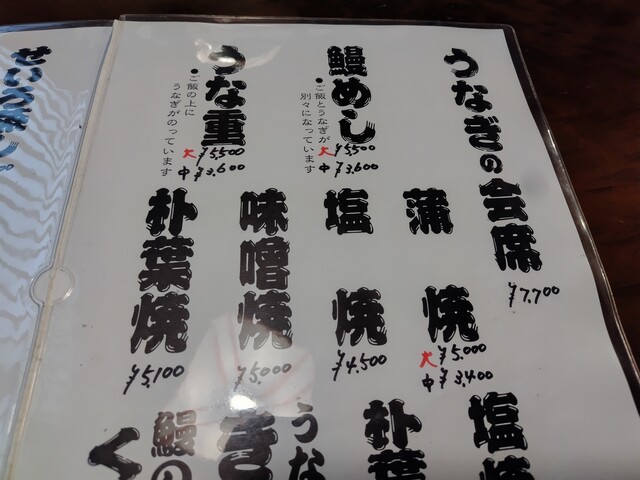 うなぎの会席
¥7,700
鰻めし
・ご飯とうなぎが
別々になっています
大 ¥5,500
中 ¥3,600
うな重
・ご飯の上に
うなぎがのっています
大 ¥5,500
中 ¥3,600
蒲焼
大 ¥5,000
中 ¥3,400
塩焼
¥4,500
味噌焼
¥5,000
朴葉焼
¥5,100
塩焼
朴葉
うな
鰻の
く
せいろ